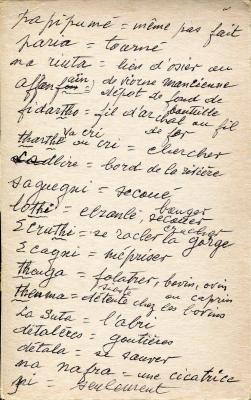 papipumé = même pas fait
paria = tourné
na riuta = lien d'osier ou
de viorne mancienne
affon = dépôt de fond de
bouteille
fidartho = fil d'archal ou fil
de fer
thartho ou cri = chercher
va cri
= bord de la rivière
saquegni = secoué
lothi = ebranlé, bouger
secouer
Ecruthi = se racler la gorge
cracher
Ecagni = mépriser
thenga = folatrer, bovin, ovin
ou caprin
thenma = sieste
détente chez les bovins
La Suta = l'abri
détalères = goutières
détala = se sauver
na nafra = une cicatrice
ni = seulement